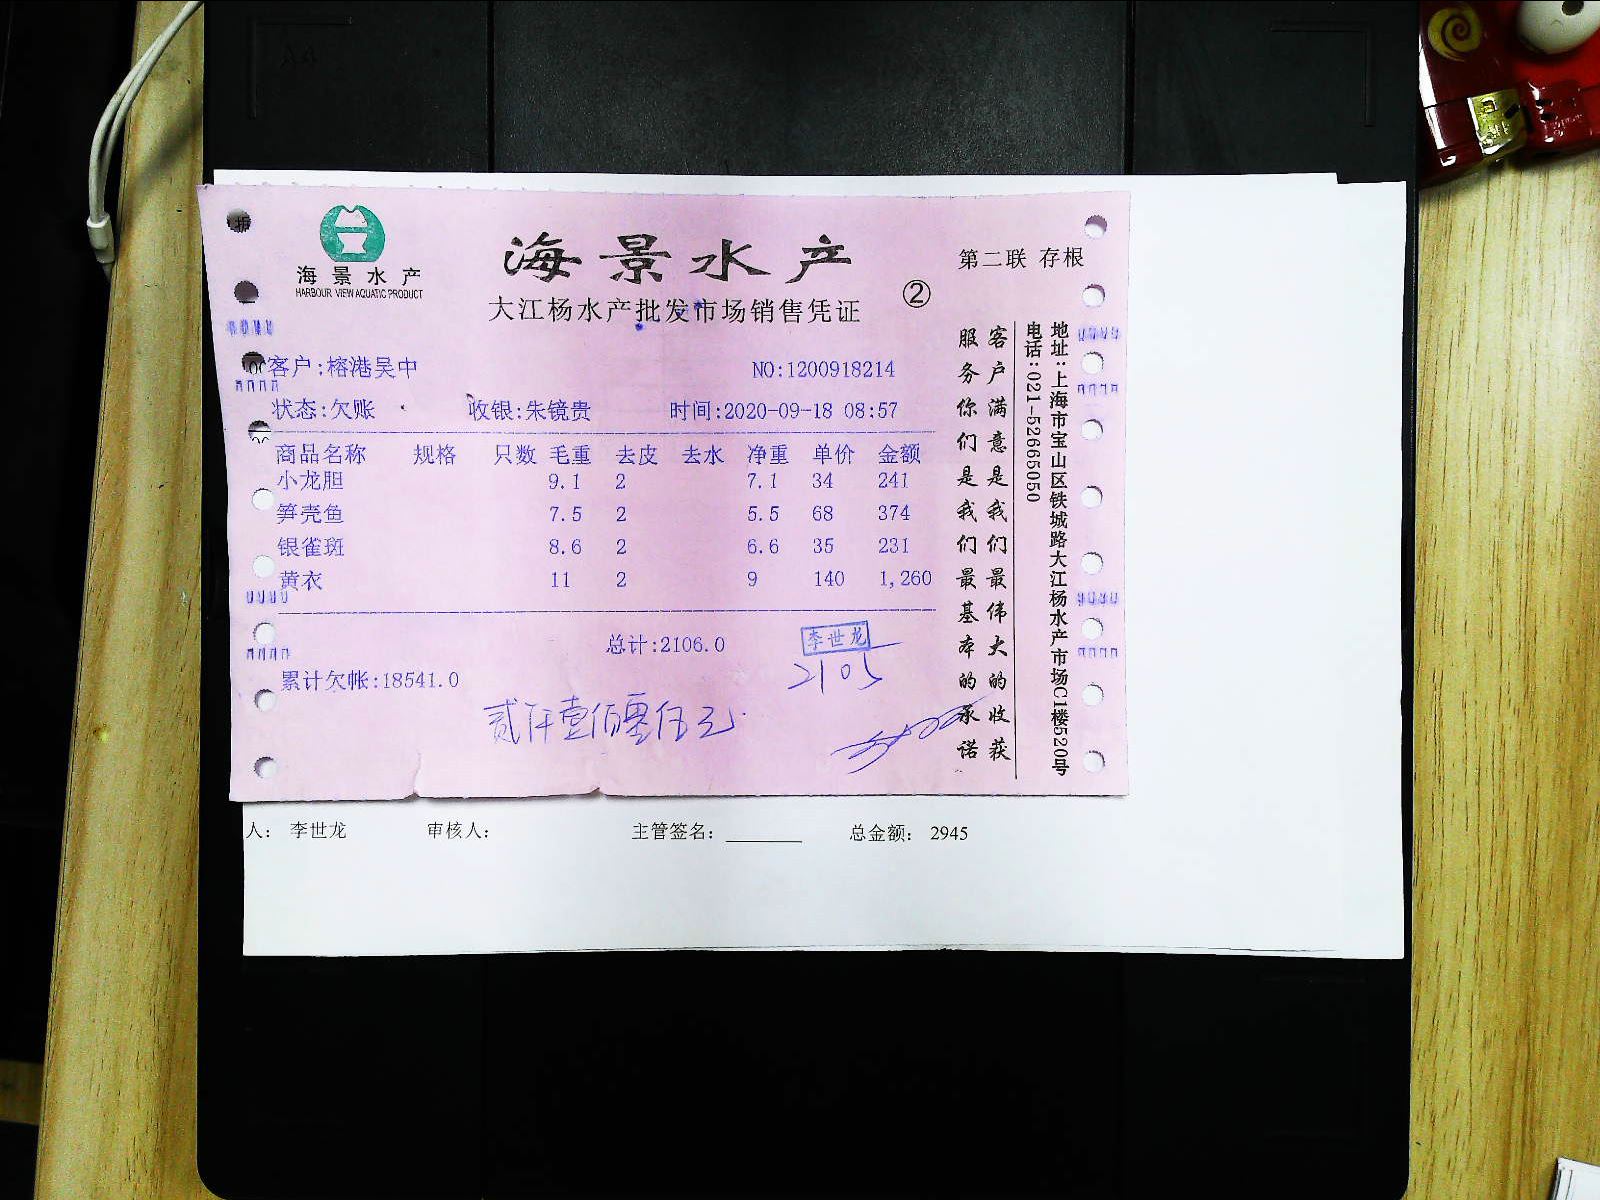 海景水产
HARBOUR VIEW AQUATIC PRODUCT
海景水产
大江杨水产批发市场销售凭证
②
第二联 存根
客户:榕港吴中
NO:1200918214
状态:欠账 收银:朱镜贵 时间:2020-09-18 08:57
商品名称 规格 只数 毛重 去皮 去水 净重 单价 金额
小龙胆 9.1 2 7.1 34 241
笋壳鱼 7.5 2 5.5 68 374
银雀斑 8.6 2 6.6 35 231
黄衣 11 2 9 140 1,260
总计:2106.0
李世龙
2105
累计欠帐:18541.0
贰仟壹佰零伍元
客户满意是我们最伟大的收获
服务你们是我们最基本的承诺
地址:上海市宝山区铁城路大江杨水产市场C1楼520号
电话:021-52665050
人: 李世龙 审核人: 主管签名: ______ 总金额: 2945